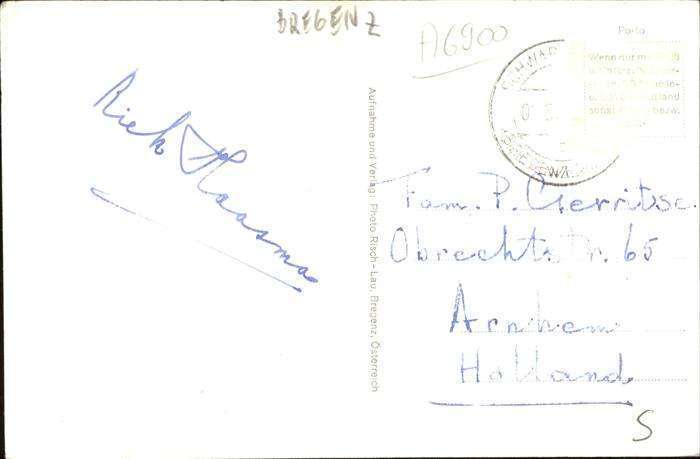 BREGENZ
A6900
Porto
Wenn nur
sonst bezw.
Riek Haasma
Aufnahme und Verlag: Photo Risch-Lau, Bregenz, Österreich
Fam. P. Gerritse.
Obrechtstr. 65
Arnhem
Holland
S